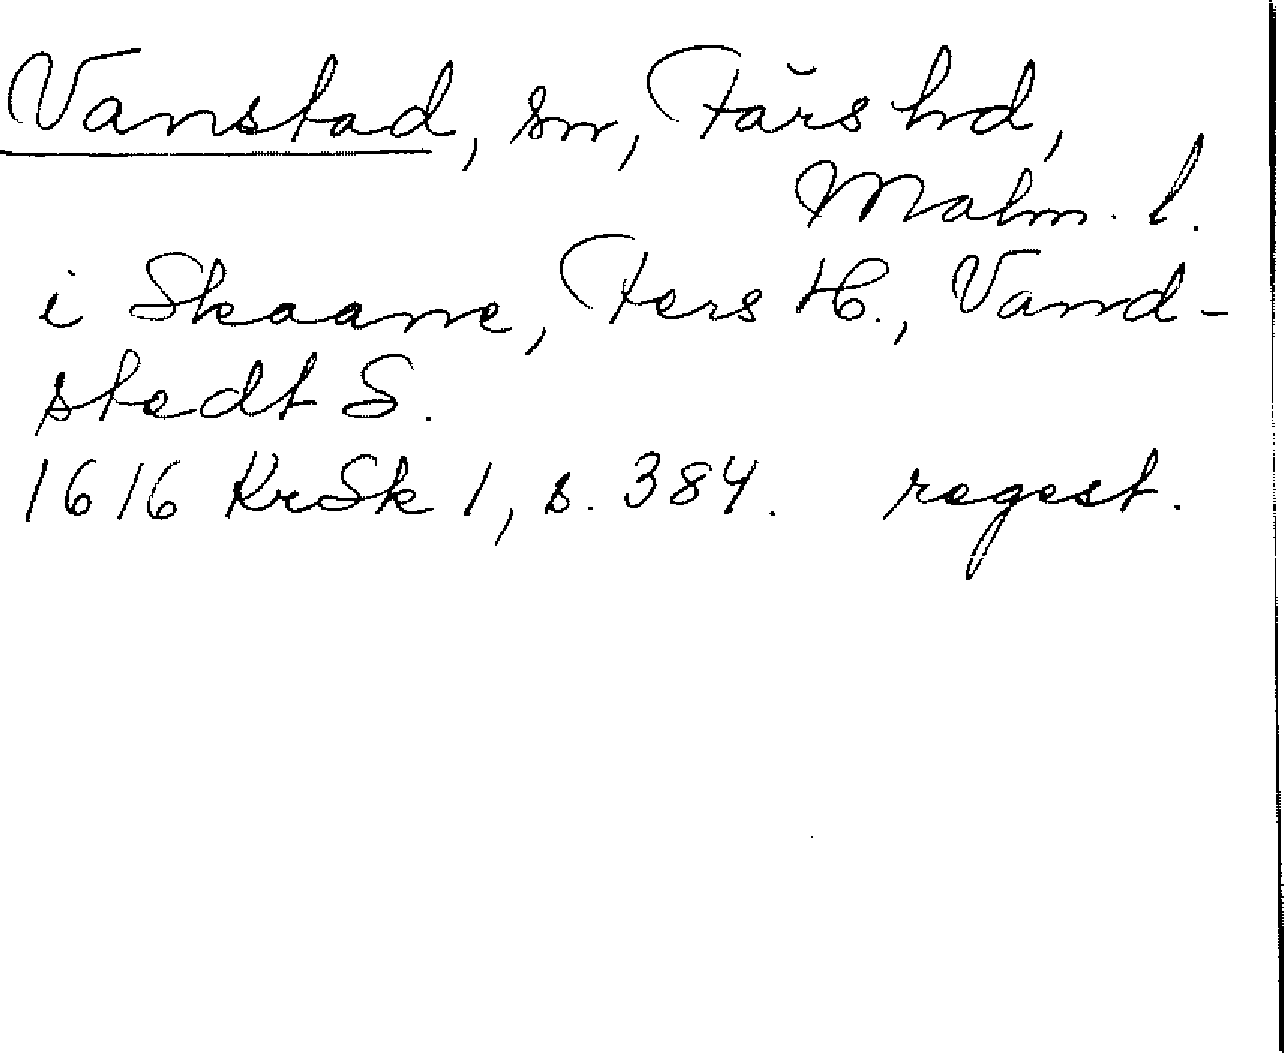 Vanstad, sn, Färs hd,
Malm. l.
i Skaane, Fers H., Vand-
stedt S.
1616 KrSk 1, s. 384. regest.